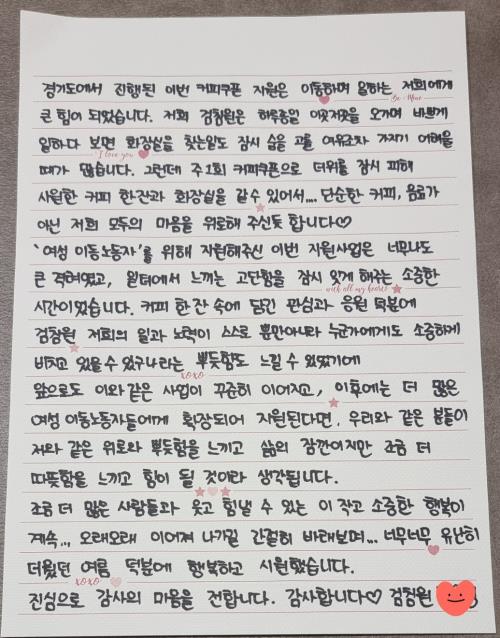 경기도에서 진행된 이번 커피쿠폰 지원은 이동하며 일하는 저희에게
Be Mine
큰 힘이 되었습니다. 저희 검침원은 하루종일 이곳저곳을 오가며 바쁘게
일하다 보면 화장실을 찾는일도 잠시 숨을 고를 여유조차 가지기 어려울
I love you
때가 많습니다. 그런데 주1회 커피쿠폰으로 더위를 잠시 피해
시원한 커피 한잔과 화장실을 갈수 있어서.... 단순한 커피, 음료가
아닌 저희 모두의 마음을 위로해 주신듯 합니다♡
'여성 이동노동자'를 위해 지원해주신 이번 지원사업은 너무나도
큰 격려였고, 일터에서 느끼는 고단함을 잠시 잊게 해주는 소중한
with all my hearts
시간이었습니다. 커피 한잔 속에 담긴 관심과 응원 덕분에
검침원 저희의 일과 노력이 스스로 뿐만아니라 누군가에게도 소중하게
비치고 있을 수 있구나라는 뿌듯함도 느낄 수 있었기에
xoxo
앞으로도 이와같은 사업이 꾸준히 이어지고, 이후에는 더 많은
여성 이동노동자들에게 확장되어 지원된다면, 우리와 같은 분들이
저와 같은 위로와 뿌듯함을 느끼고 삶의 잠깐이지만 조금 더
따뜻함을 느끼고 힘이 될 것이라 생각됩니다.
조금 더 많은 사람들과 웃고 힘낼 수 있는 이 작고 소중한 행복이
계속... 오래오래 이어져 나가길 간절히 바래보며... 너무너무 유난히
더웠던 여름 덕분에 행복하고 시원했습니다.
xoxo
진심으로 감사의 마음을 전합니다. 감사합니다♡ 검침원